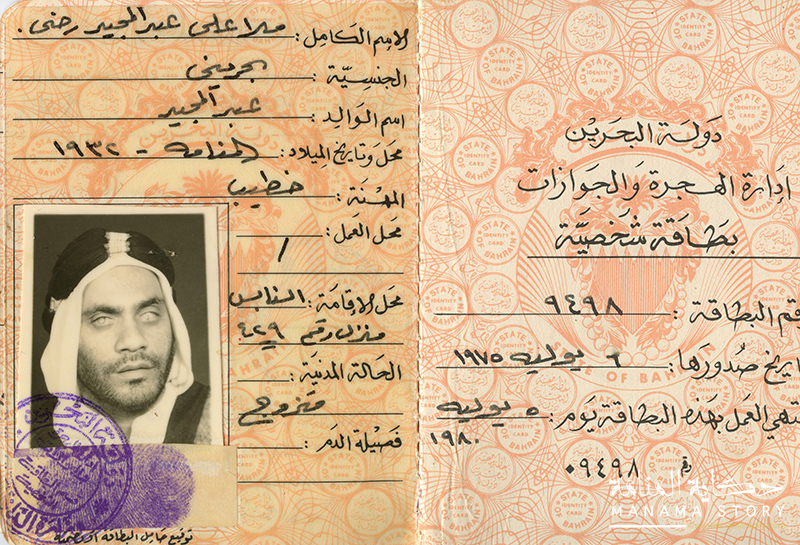 الاسم الكامل: ملا علي عبد المجيد رضي.
الجنسيّة: بحريني
اسم الوالد: عبد المجيد
محل وتاريخ الميلاد: المنامه - ١٩٣٢
المهنة: خطيب
محل العمل: /
محل الاقامة: السنابس
منزل رقم ٤٢٩
الحالة المدنية:
متزوج
فصيلة الدم:
توقيع حامل البطاقة
دولة البحرين
إدارة الهجرة والجوازات
بطاقة شخصيّة
رقم البطاقة: ٩٤٩٨
تاريخ صدورها: ٦ يوليه ١٩٧٥
ينتهي العمل بهذه البطاقة يوم: ٥ يوليه
١٩٨٠
رقم ٠٩٤٩٨
STATE OF BAHRAIN
IDENTITY CARD
حكاية المنامة
MANAMA STORY